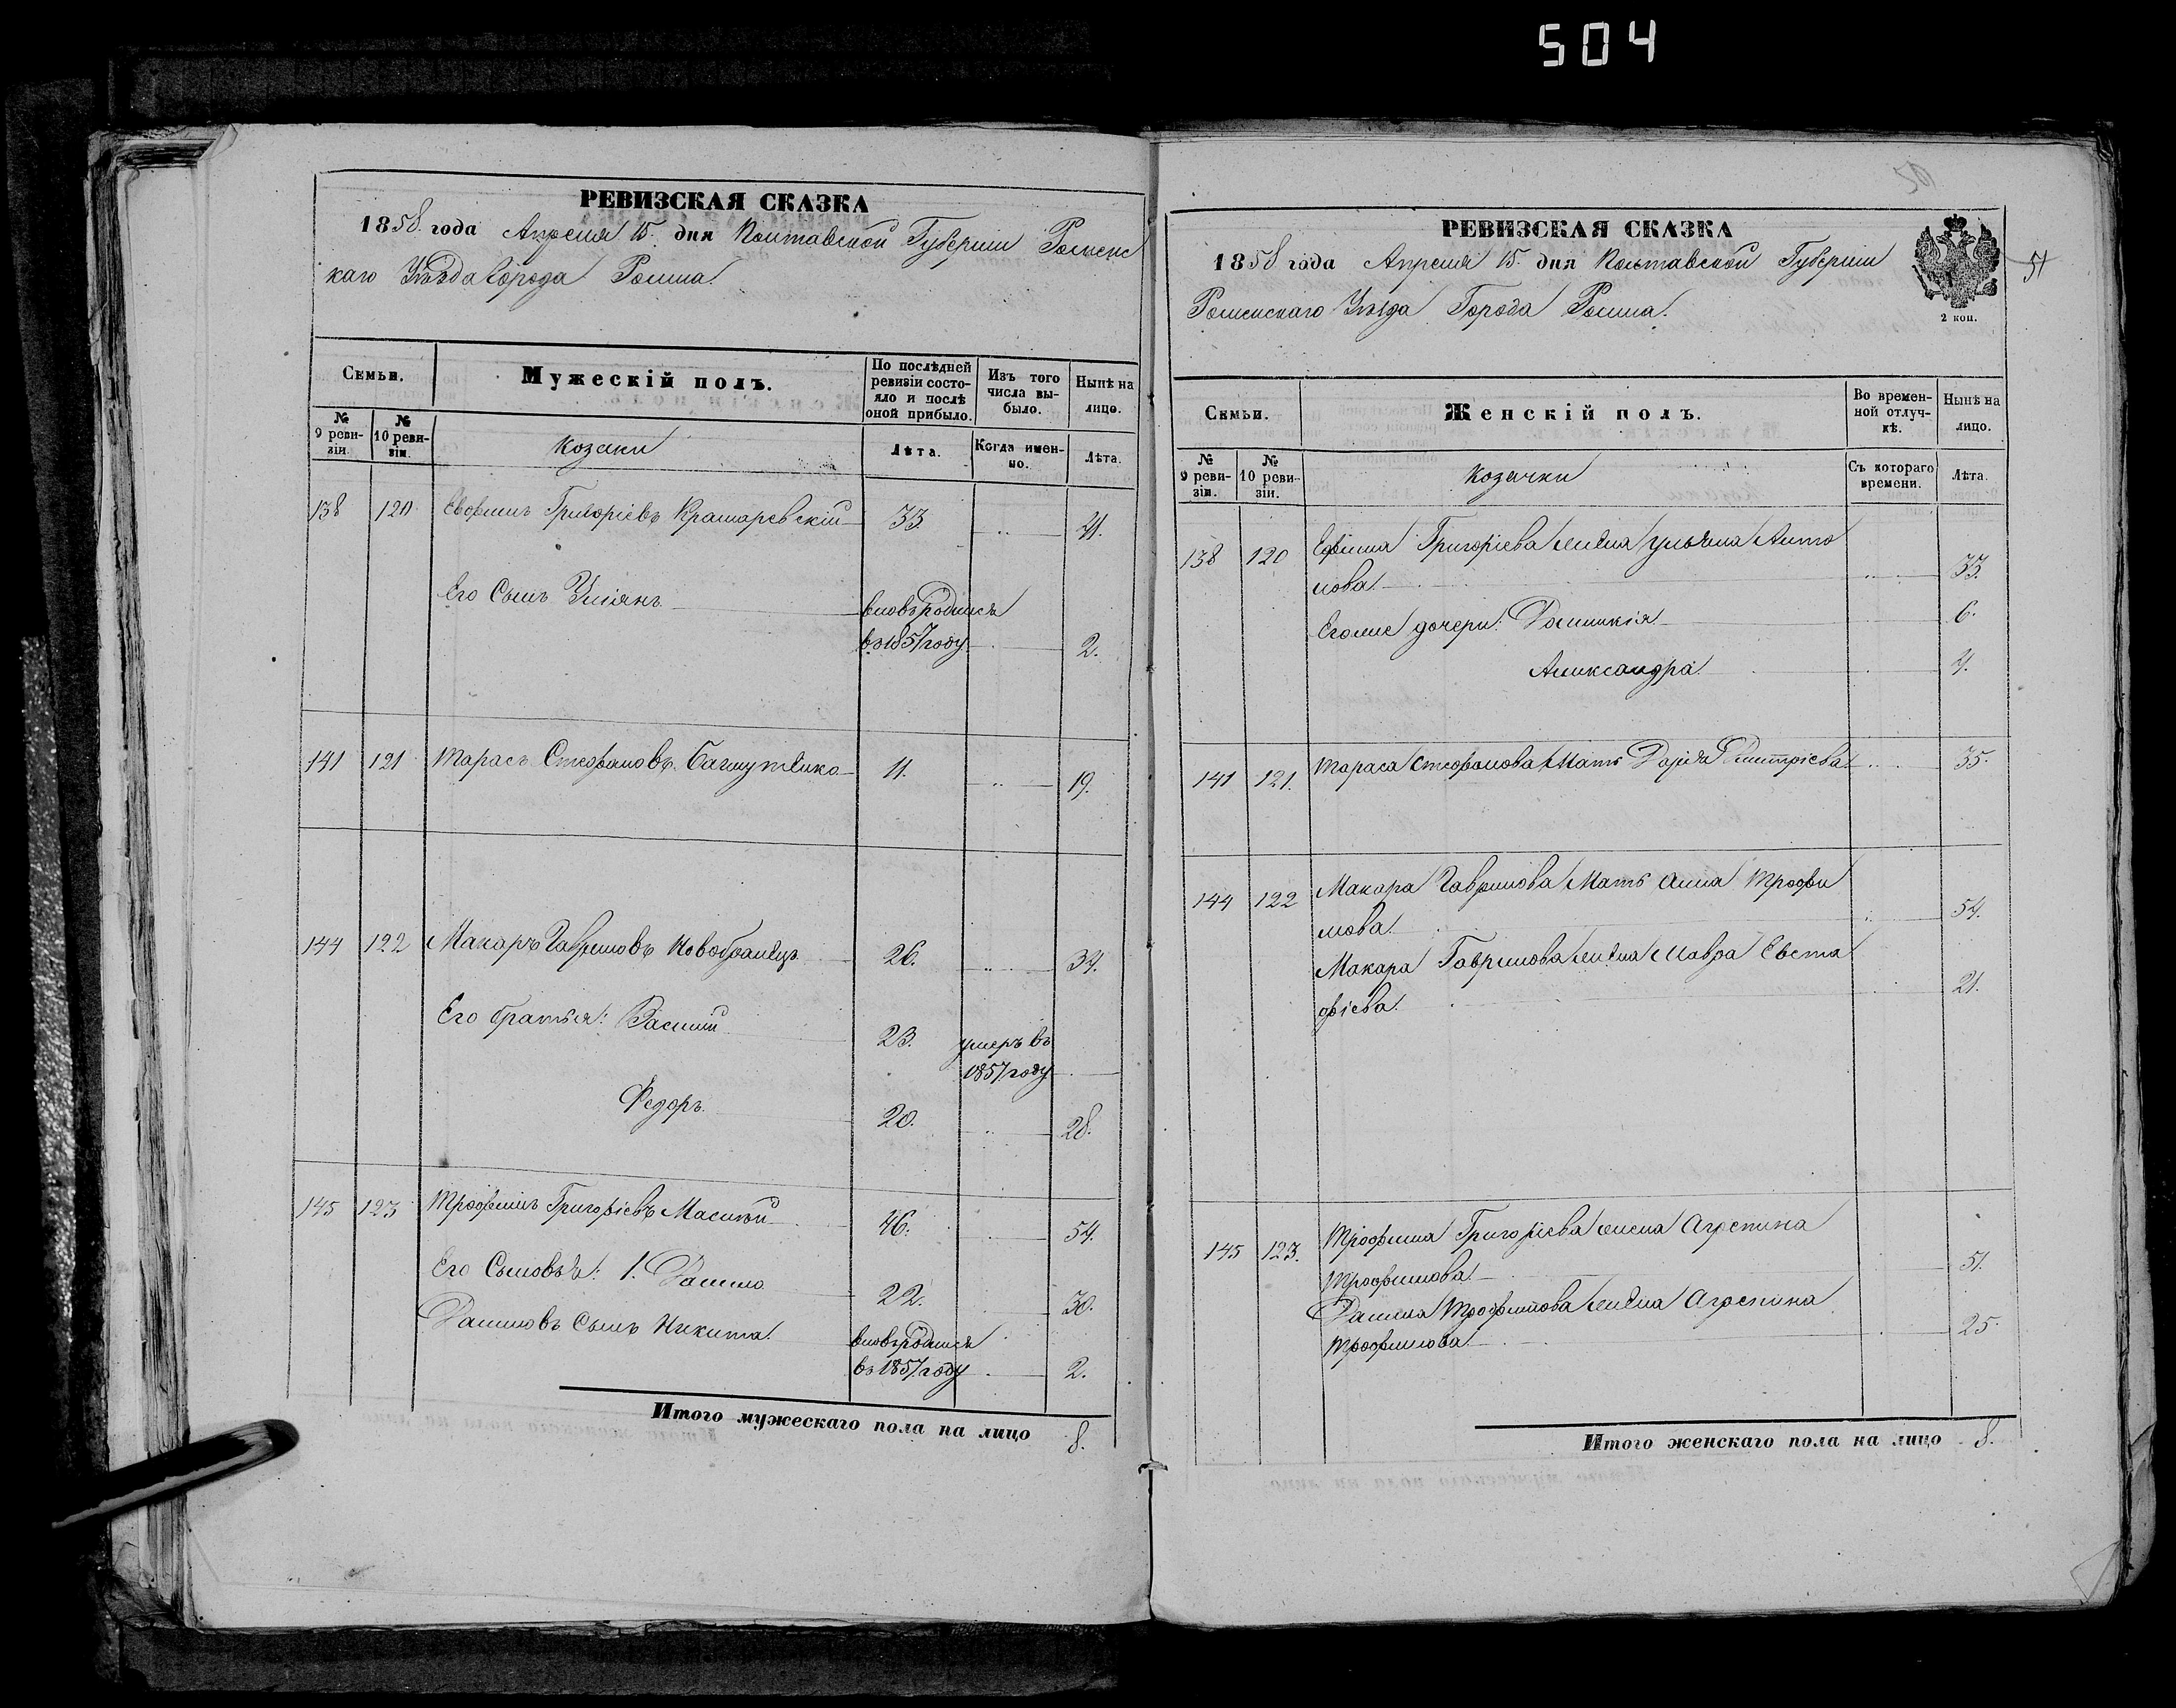 504
РЕВИЗСКАЯ СКАЗКА
1858. года Апреля 15. дня Полтавской Губерніи Роменс
каго Уѣзда Города Ромна.
Семьи.
Мужескій полъ.
По послѣдней ревизіи состояло и послѣ оной прибыло.
Изъ того числа выбыло.
Нынѣ на лицо.
№ 9 ревизіи.
№ 10 ревизіи.
Козаки
Лѣта.
Когда именно.
Лѣта.
138 120 Евфимъ Григоріевъ Крамаревскій 33 41.
Его Сынъ Уліянъ вновь родился
въ 1857 году 2.
141 121 Тарасъ Стефановъ 11. 19.
144 122 Макаръ Гавриловъ Новобранецъ 26. 34.
Его братья: Василій 23. умеръ въ
1857 году
Федоръ 20. 28.
145 123 Трофимъ Григоріевъ 46. 54.
Его Сыновья: 1. Данило 22. 30.
Даниловъ Сынъ Никита вновь родился
въ 1857 году 2.
Итого мужескаго пола на лицо 8.
51
РЕВИЗСКАЯ СКАЗКА
1858 года Апреля 15. дня Полтавской Губерніи
Роменскаго Уѣзда Города Ромна.
2 коп.
Семьи.
Женскій полъ.
Во временной отлучкѣ.
Нынѣ на лицо.
№ 9 ревизіи.
№ 10 ревизіи.
Козачки
Съ котораго времени.
Лѣта.
138 120 Ефима Григоріева жена Ульяна Анто
нова 33.
Его же дочери: Домникія 6.
Александра 4.
141 121. Тараса Стефанова Мать Дарія Дмитріева 35.
144 122 Макара Гаврилова Мать Анна Трофи
мова 54.
Макара Гаврилова жена Мавра Евста
фіева 21.
145 123. Трофима Григоріева жена Агрепина
Трофимова 51.
Данила Трофимова жена Агрепина
Трофимова 25.
Итого женскаго пола на лицо 8.